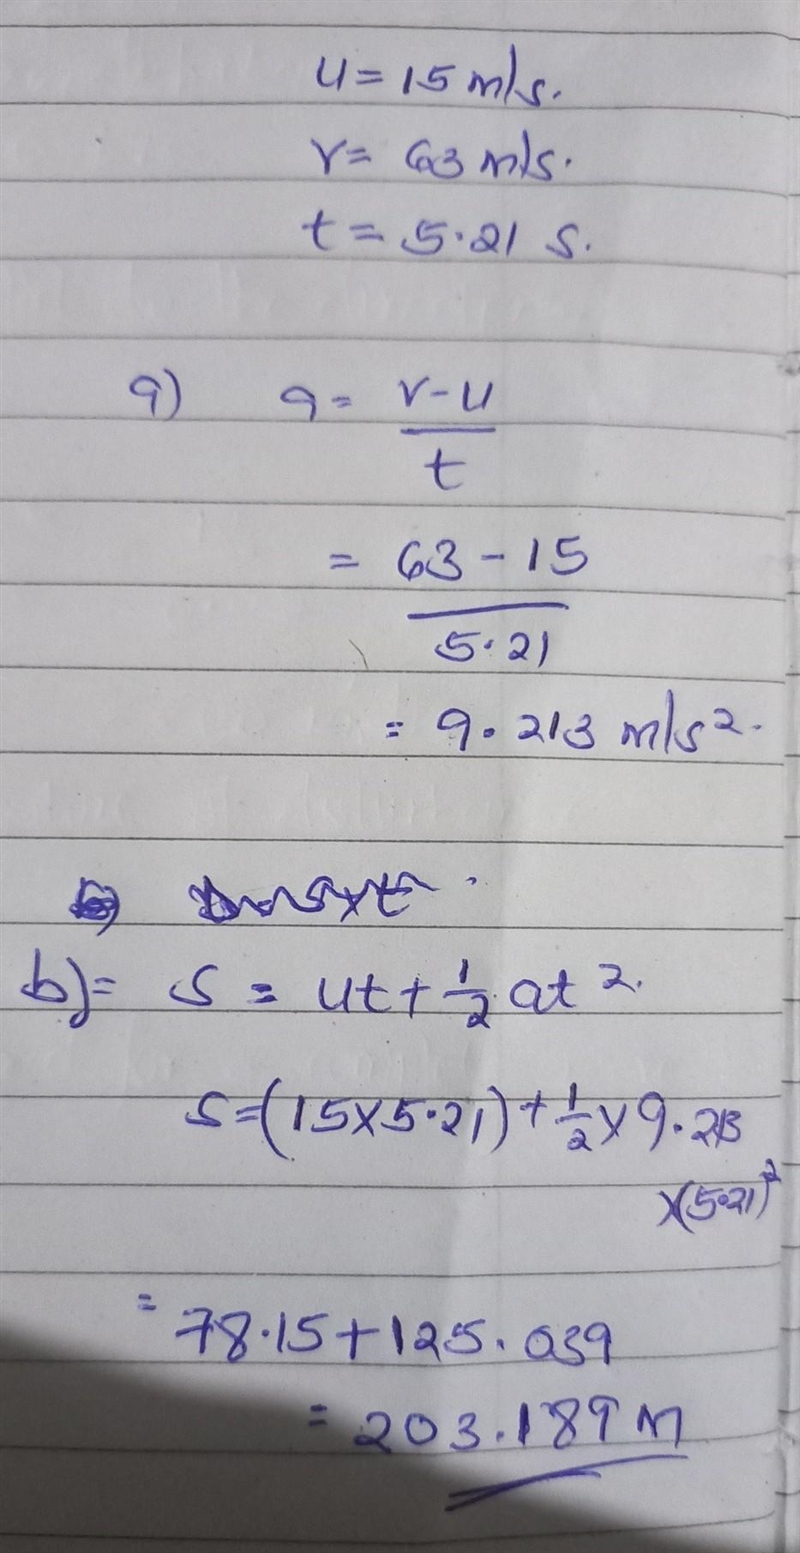 u = 15 m/s.
v = 63 m/s.
t = 5.21 s.
a) a = v-u
t
= 63 - 15
5.21
= 9.213 m/s2.
b)= s = ut + 1/2 at 2.
s = (15×5.21) + 1/2 × 9.213
×(5.21)2
= 78.15 + 125.039
= 203.189 m